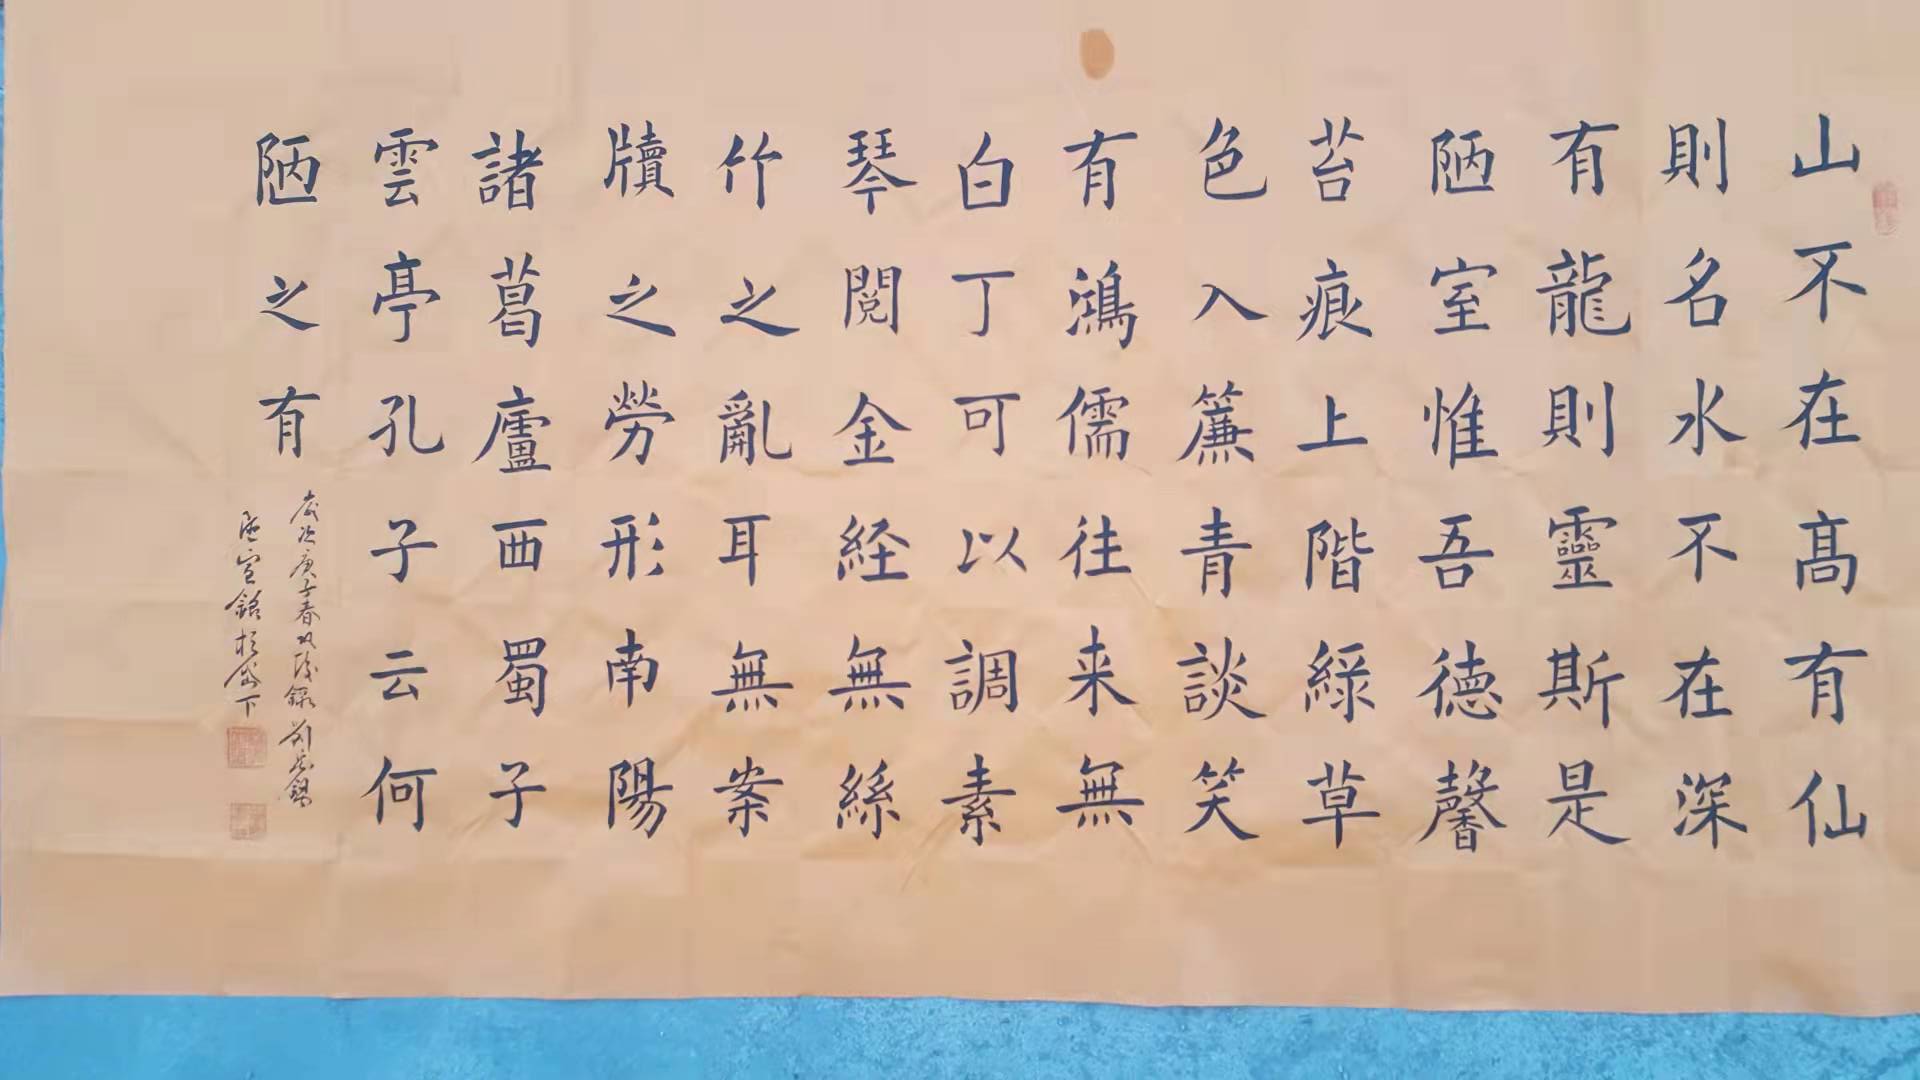 山不在高有仙
則名水不在深
有龍則靈斯是
陋室惟吾德馨
苔痕上階綠草
色入簾青談笑
有鴻儒往来無
白丁可以調素
琴閲金経無絲
竹之亂耳無案
牘之勞形南陽
諸葛廬西蜀子
雲亭孔子云何
陋之有
歲次庚子春月錄劉禹錫
陋室銘於下